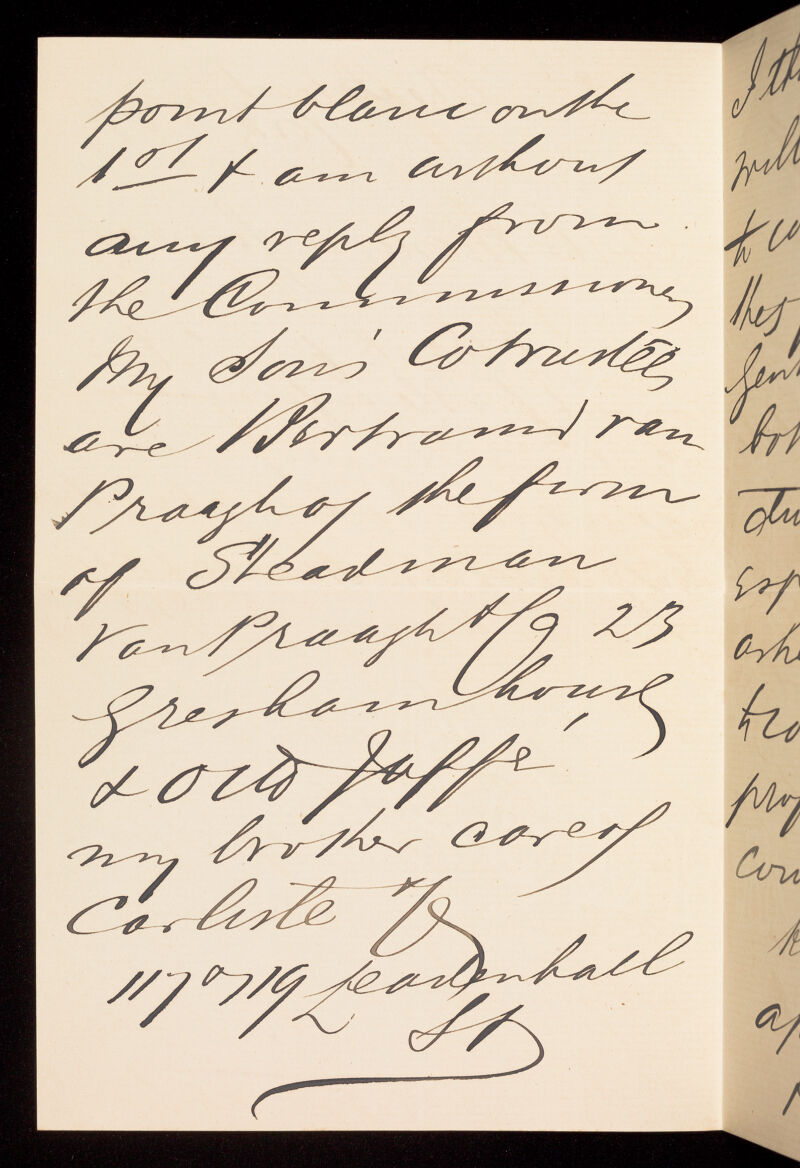 point blanc on the
1st & am without
any reply from
the Commissioners
My Son's Cotrustees
are Bertram van
Praagh of the firm
of Steadman
van Praagh & Co 23
Gresham house
& Otto Jaffé
my brother care of
Carliste & Co
117 & 119 Leadenhall
St
I th
will
to co
thes
Gent
bot
du
esp
aske
to co
prop
con
ap